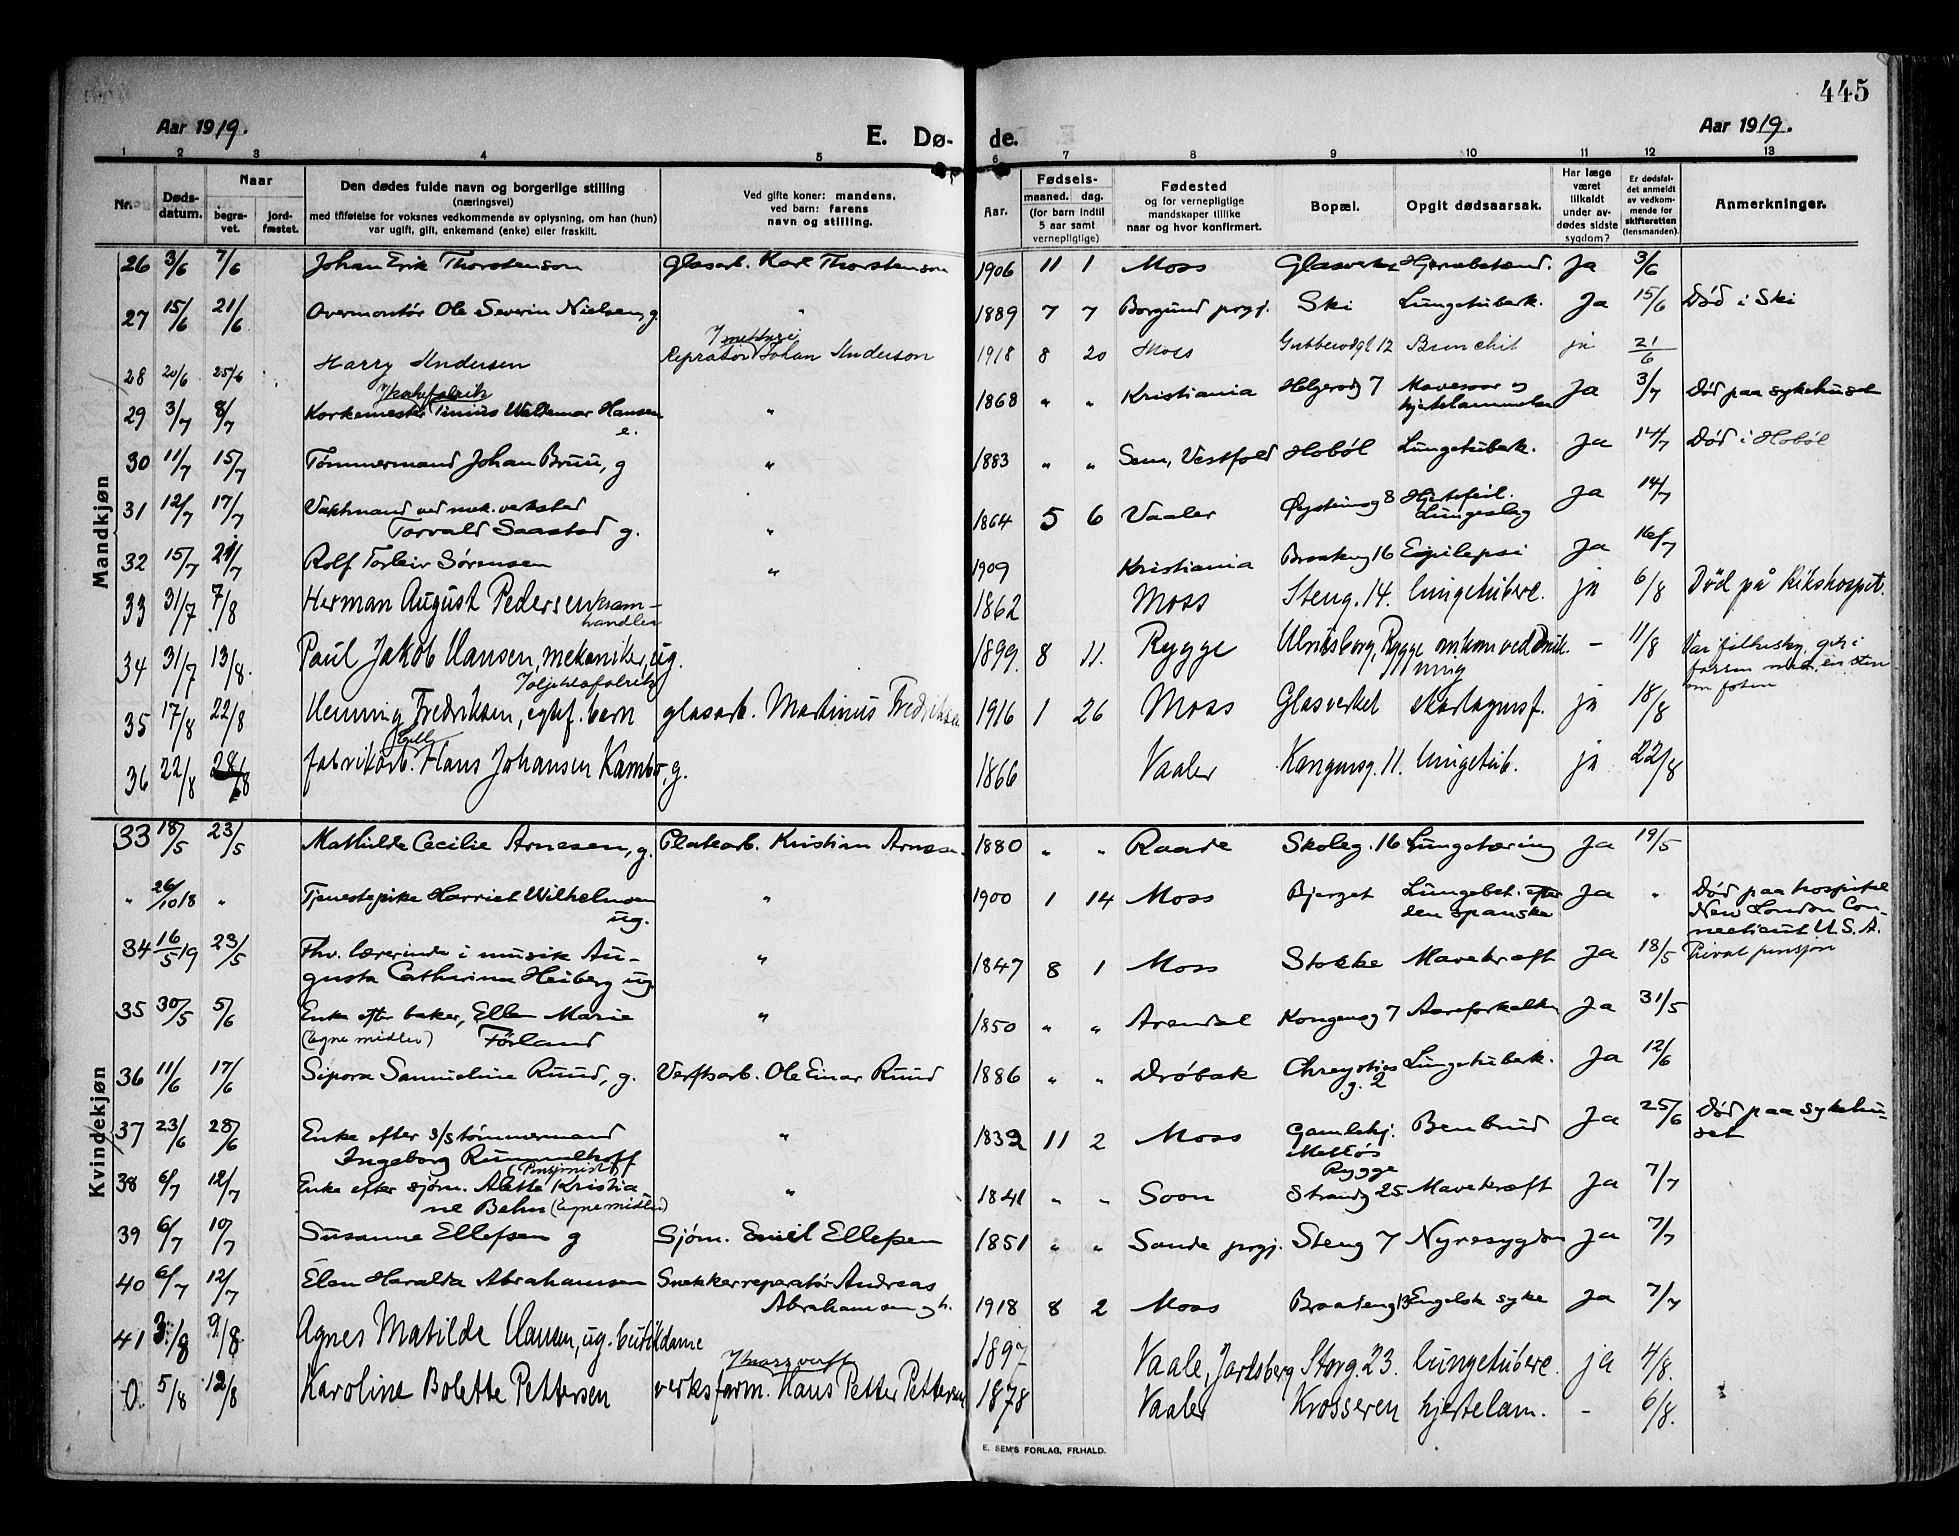 445
Aar 1919. E. Dø- de. Aar 1919.
1 2 3 4 5 6 7 8 9 10 11 12 13
Nr. Døds-datum. Naar begra-vet. jord-fæstet. Den dødes fulde navn og borgerlige stilling (næringsvei) med tilføielse for voksnes vedkommende av oplysning, om han (hun) var ugift, gift, enkemand (enke) eller fraskilt. Ved gifte koner: mandens, ved barn: farens navn og stilling. Aar. Fødsels- maaned. dag. (for barn indtil 5 aar samt vernepligtige) Fødested og for vernepligtige mandskaper tillike naar og hvor konfirmert. Bopæl. Opgit dødsaarsak. Har læge været tilkaldt under av-dødes sidste sygdom? Er dødsfal-det anmeldt av vedkom-mende for skifteretten (lensmanden). Anmerkninger.
Mandkjøn
26 3/6 7/6 Johan Erik Thorstenson Glasarb. Karl Thorstenson 1906 11 1 Moss Glasverket Ja 3/6
27 15/6 21/6 Overmontør Ole Severin Nielsen, g. " 1889 7 7 Borgund prgj. Ski Lungetuberk. Ja 15/6 Død i Ski
28 20/6 25/6 Harry Andersen Repratør Johan Anderson 1918 8 20 Moss 12 Bronchit ja 21/6
29 3/7 8/7 Korkemester Tinius Waldemar Hansen e. " 1868 " " Kristiania Helgerødg 7 Mavesaar og hjertelammelse Ja 3/7 Død paa sykehuset
30 11/7 15/7 Tømmermand Johan Bruu, g " 1883 " " Sem, Vestfold Hobøl Lungetuberk. Ja 14/7 Død i Hobøl
31 12/7 17/7 Vaktmand ved mek. verksted
Torvald Saastad g. " 1864 5 6 Vaaler Øysteinsg 8 Hjertefeil. Lungeslag Ja 14/7
32 15/7 21/7 Rolf Torleiv Sørensen " 1909 Kristiania Braateng 16 Epilepsi Ja 16/7
33 31/7 7/8 Herman August Pedersen kram-
handler 1862 Moss Steng. 14. lungetuberc. ja 6/8 Død på Rikshospit.
34 31/7 13/8. Paul Jakob Hansen, mekaniker, ug. 1899. 8 11. Rygge Ulriksborg, Rygge omkom ved drukning – 11/8
35 17/8 22/8 Henning Fredriksen, egtef. barn glasarb. Martinus Fredriksen 1916 1 26 Moss Glasverket ja 18/8
36 22/8 28/8 fabrikarb. Hans Johansen Kambo, g. 1866 Vaaler Kongensg. 11. lungetub. ja 22/8
Kvindekjøn
33 18/5 23/5 Mathilde Cecilie Arnesen, g. Platearb. Kristian Arnesen 1880 " " Raade Skoleg. 16 Lungetæring Ja 19/5
" 26/10 18 " Tjenestepike Harriet Wilhelmsen
ug. " 1900 1 14 Moss Bjerget Lungebet. efter den spanske Ja " Død paa hospitel New London Connecticut U.S.A.
34 16/5 19 23/5 Fhv. lærerinde i musik Au-
gusta Cathrina Heiberg ug. " 1847 8 1 Moss Stokke Mavekræft Ja 18/5 Privat pensjon
35 30/5 5/6 Enke efter baker, Ellen Marie
(egne midler) Førland " 1850 " " Arendal Kongensg 7 Aareforkalkn Ja 31/5
36 11/6 17/6 Sipora Samueline Ruud, g. Verftsarb. Ole Einar Ruud 1886 " " Drøbak Chrysties g. 2 Lungetuberk. Ja 12/6
37 23/6 28/6 Enke efter s/stømmermand
Ingeborg Rummelhoff " 1832 11 2 Moss Gamlehj. Melløs Rygge Benbrud Ja 25/6 Død paa sykehu-
set
38 6/7 12/7 Enke efter sjøm. Alette Kristia
ne Behn (egne midler) " 1841 " " Soon Strandg 25 Mavekræft Ja 7/7
39 6/7 10/7 Susanne Ellefsen g Sjøm. Emil Ellefsen 1851 " " Sande prgj. Steng 7 Nyresygdom Ja 7/7
40 6/7 12/7 Elen Haralda Abrahamsen Snekkerreparatør Andreas
Abrahamsen 1918 8 2 Moss Braateng 13 Engelsk syke Ja 7/7
41 3/8 9/8 Agnes Matilde Hansen, ug. butikdame 1897 Vaale, Jarlsberg Storg. 23. lungetuberc. ja 4/8.
0. 5/8 12/8 Karoline Bolette Pettersen verksform. Hans Petter Pettersen 1878 Vaaler Krosseren hjertelam. – 6/8.
E. SEM'S FORLAG, FR.HALD.